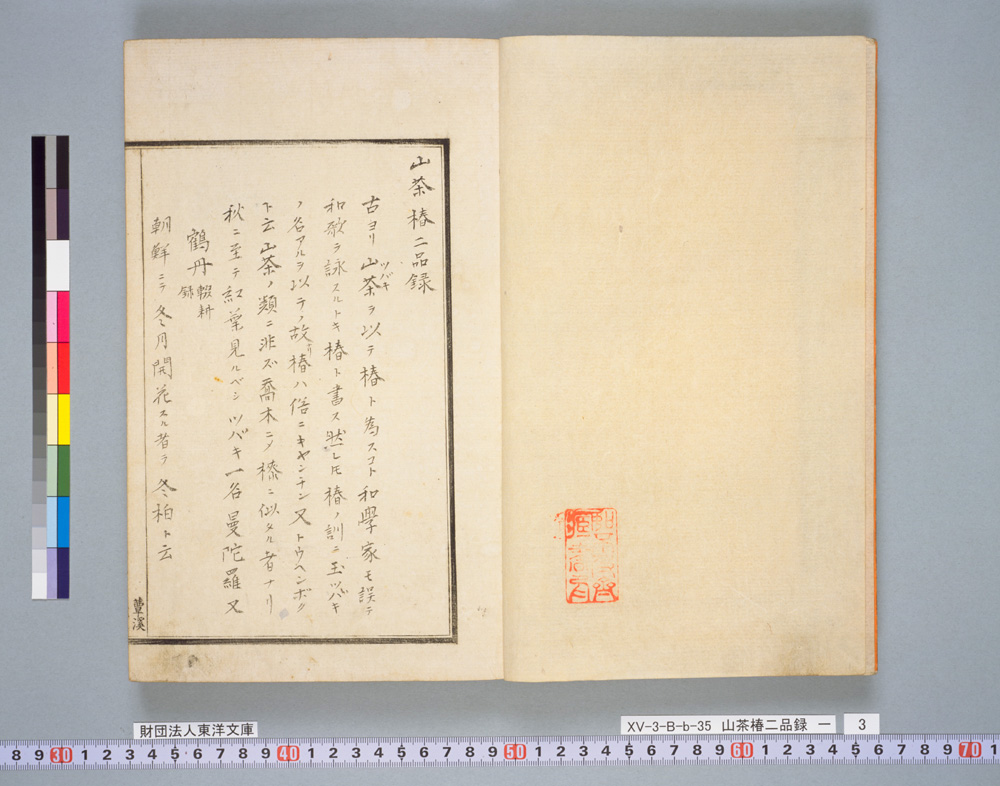 山茶椿二品録
古ヨリ山茶ツバキヲ以テ椿ト為スコト和學家モ誤テ
和歌ヲ詠スルトキ椿ト書ス然レ𪜈椿ノ訓ニ玉ツバキ
ノ名アルヲ以テノ故ナリ椿ハ俗ニキヤンチン又トウヘンボク
ト云山茶ノ類ニ非ズ喬木ニ〆樣ニ似タル者ナリ
秋ニ至テ紅葉見ルベシツバキ一名曼陀羅又
鶴丹
輟耕
録
朝鮮ニテ冬月開花スル者ヲ冬柏ト云
蕈溪
財団法人東洋文庫
XV-3-B-b-35 山茶椿二品録 一
3
8 9 30 1 2 3 4 5 6 7 8 9 40 1 2 3 4 5 6 7 8 9 50 1 2 3 4 5 6 7 8 9 60 1 2 3 4 5 6 7 8 9 70 1